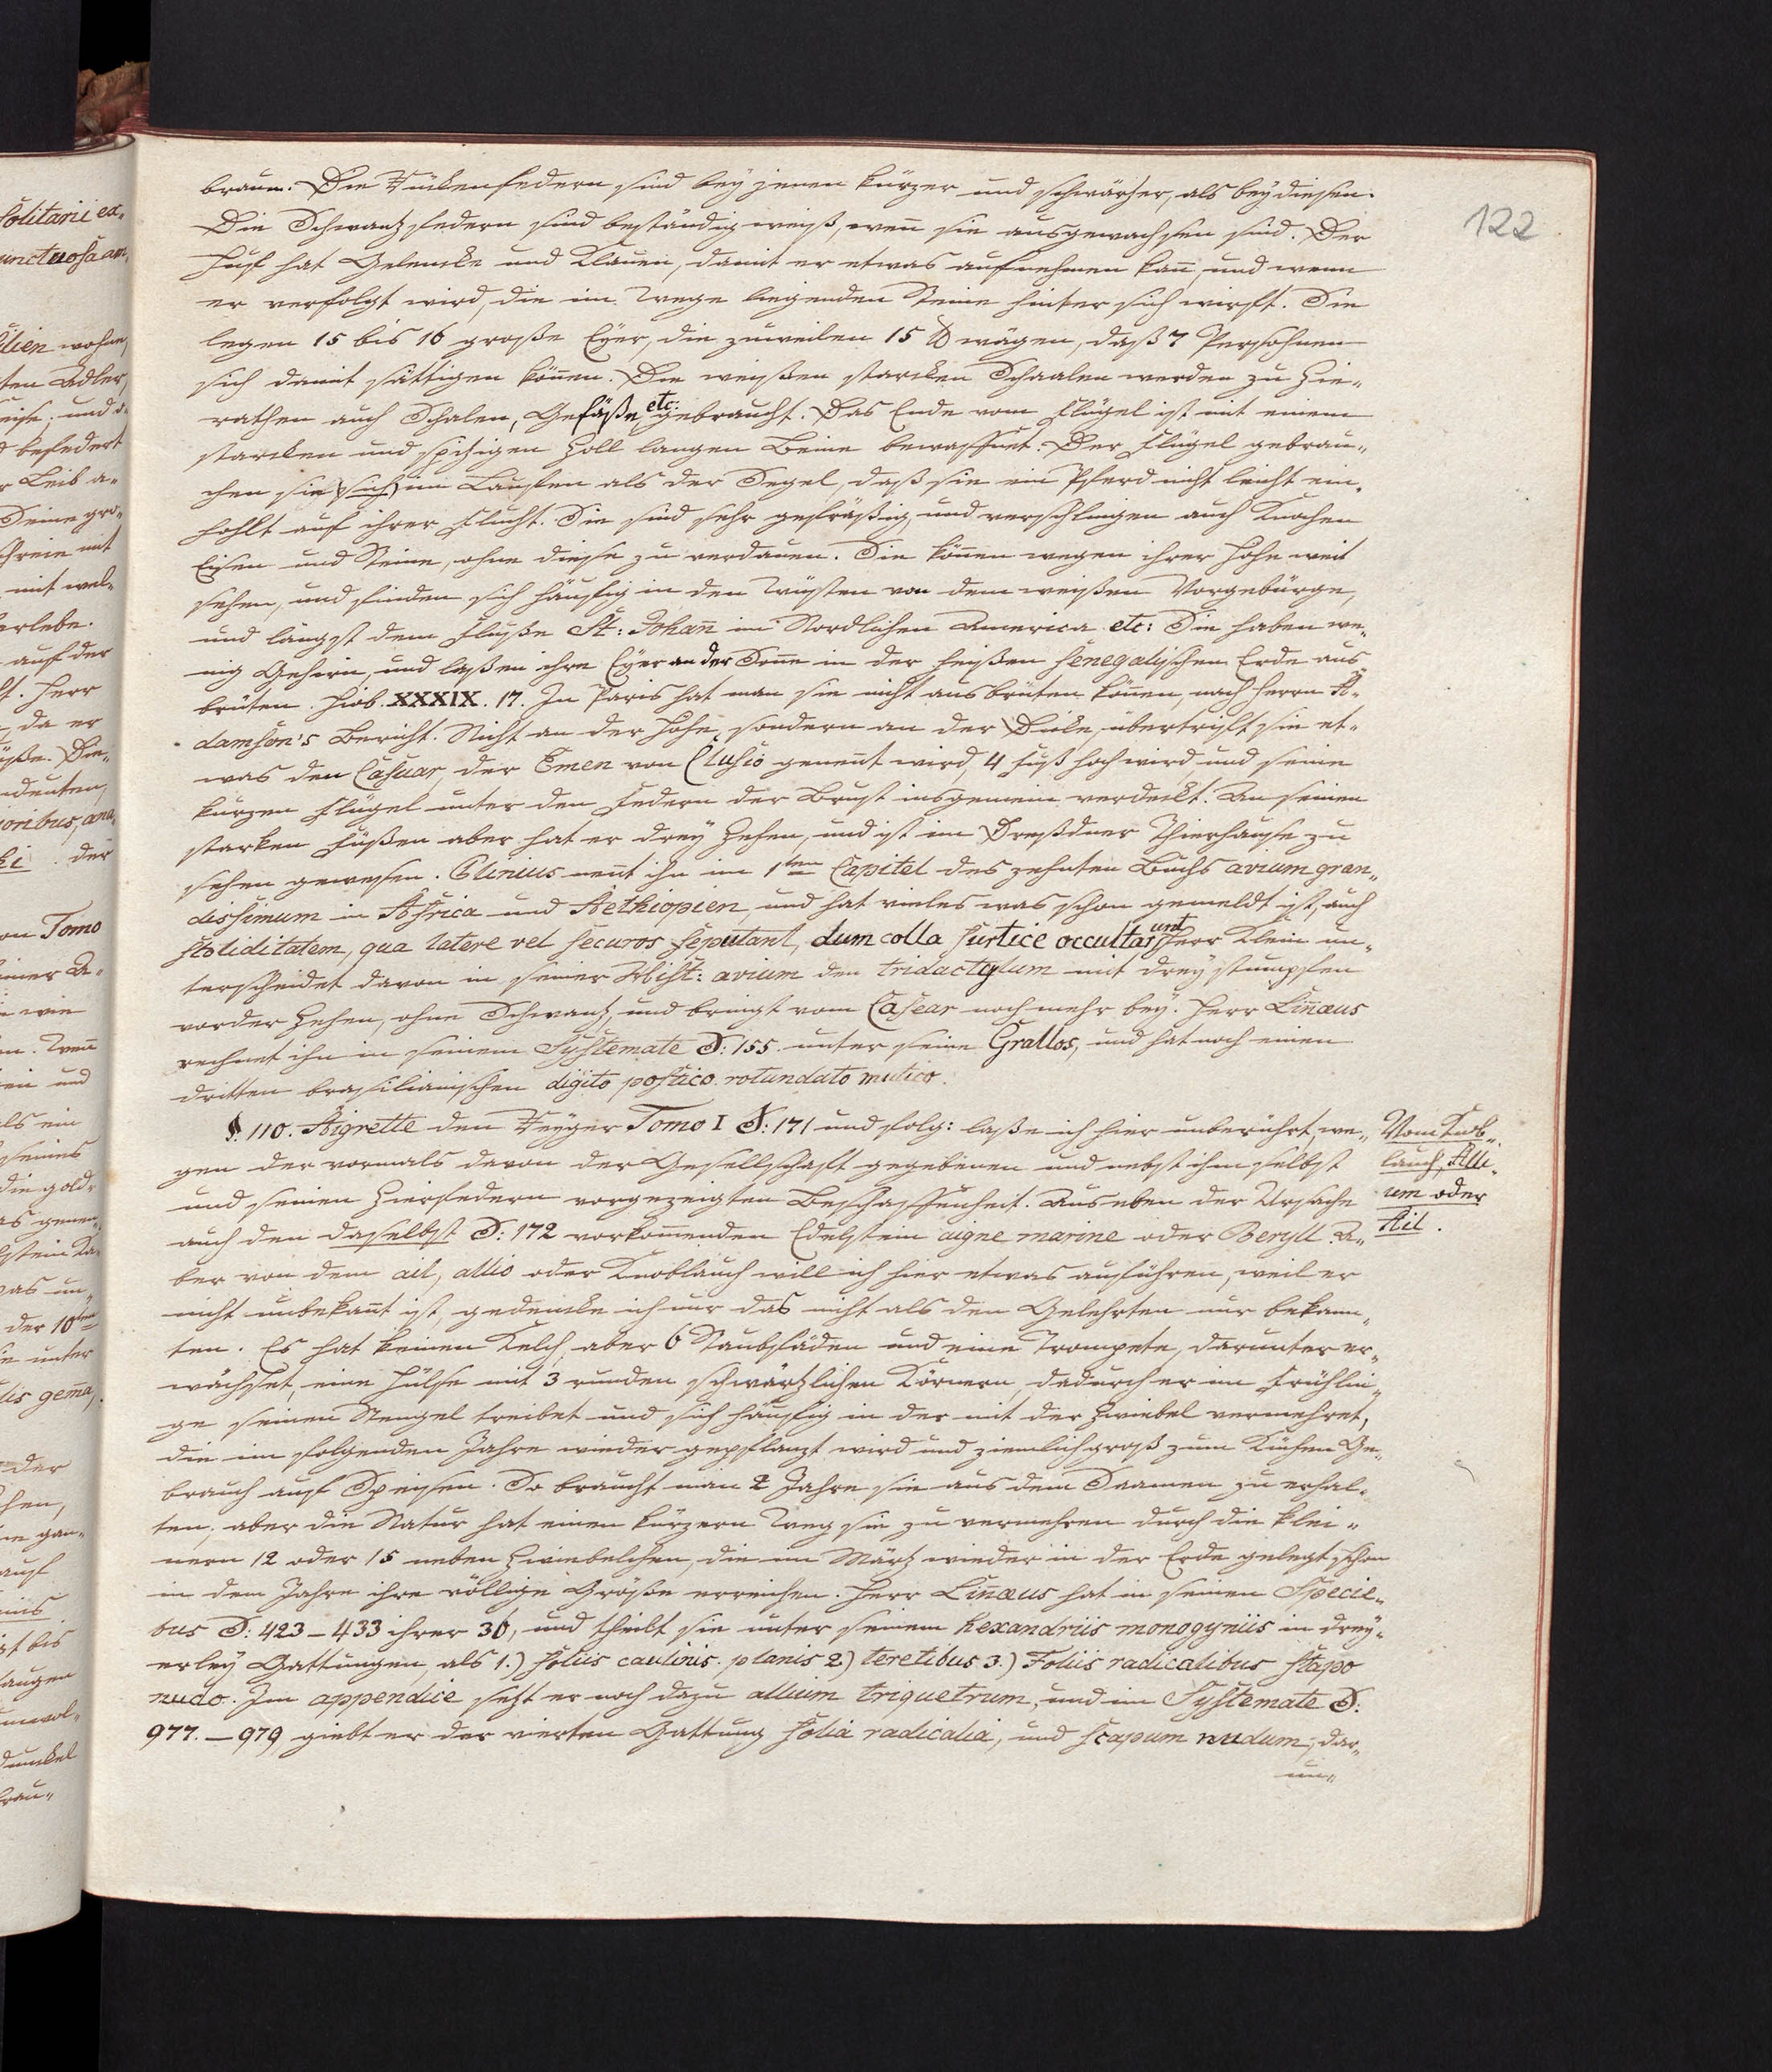 122
braun. Die Rückenfedern sind bey jenen kürzer und schwärzer, als bey diesen.
Die Schwantzfedern sind beständig weiß, wenn sie ausgewachsen sind. Der
Huf hat Gelencke und Klauen, damit er etwas aufnehmen kann, und wenn
er verfolgt wird, die im Wege liegenden Steine hinter sich wirft. Sie
legen 15 bis 16 große Eyer, die zuweilen 15 ℔ wägen, daß 7 Persohnen
sich damit sättigen können. Die weißen starcken Schaalen werden zu Zie„
rathen auch Schalen, Gefäße etc: gebraucht. Das Ende vom Flügel ist mit einem
starcken und spitzigen Zoll langen Beine bewaffnet. Der Flügel gebrau„
chen sie (sich) im Lauffen als der Segel, daß sie ein Pferd nicht leicht ein„
hohlt auf ihrer Flucht. Sie sind sehr gefräßig, und verschlingen auch Knochen
Eisen und Steine, ohne diese zu verdauen. Sie können wegen ihrer Höhe weit
sehen, und finden sich häuffig in den Wüsten von dem weißen Vorgebürge,
und längst dem Fluße St: Johann im Nordlichen America etc: Sie haben we„
nig Gehirn, und laßen ihre Eyer an der Sonne in der heißen senegalischen Erde aus„
brüten. Hiob. XXXIX. 17. In Paris hat man sie nicht ausbrüten können, nach Herrn A„
damson's Bericht. Nicht an der Höhe, sondern an der Dicke, übertrift sie et„
was den Casuar, der Emen von Clusio genennt wird, 4 Fuß hoch wird, und seine
kurzen Flügel unter den Federn der Brust insgemein verdeckt. An seinen
starken Füßen aber hat er drey Zehen, und ist im Dreßdner Thierhause zu
sehen gewesen. Plinius nennt ihn im 1ten Capitel des zehnten Buchs avium gran„
dissimum in Africa und Aethiopien, und hat vieles was schon gemeldt ist, auch
stoliditatem, qua latere vel securos se putant, dum colla furtice occultarunt. Herr Klein un„
terscheidet davon in seiner Hist: avium den tridactylum mit drey stumpfen
vorder Zehen, ohne Schwantz, und bringt vom Casear noch mehr bey. Herr Linnæus
rechnet ihn in seinem Systemate S: 155. unter seine Grallos, und hat noch einen
dritten brasilianischen digito postico rotundato mutico.
§. 110. Aigrette den Reyger Tomo I S: 171 und folg: laße ich hier unberührt, we„
gen der vormals davon der Gesellschaft gegebenen und nebst ihm selbst
und seinen Zierfedern vorgezeigten Beschaffenheit. Aus eben der Ursache
auch den daselbst S: 172 vorkommenden Edelstein aigne marine oder Beryll. A„
ber von dem ail, allio oder Knoblauch will ich hier etwas anführen, weil er
nicht unbekannt ist, gedencke ich nur das nicht als den Gelehrten nur bekann„
ten. Es hat keinen Kelch, aber 6 Staubfäden und eine Trompete, darunter er„
wächset, eine Hülse mit 3 runden schwärtzlichen Körnern, dadurch er im Frühlin„
ge seinen Stengel treibet und sich häuffig in der mit der Zwiebel vermehret,
die im folgenden Jahre wieder gepflanzt wird und ziemlich groß zum Küchen Ge„
brauch auf Speisen. So braucht man 2 Jahre sie aus dem Saamen zu erhal„
ten, aber die Natur hat einen kürzern Weg sie zu vermehren durch die klei„
nern 12 oder 15 neben Zwiebelchen, die im Märtz wieder in der Erde gelegt schon
in dem Jahre ihre völlige Größe erreichen. Herr Linnæus hat in seinen Specie„
bus S: 423–433 ihrer 36, und theilt sie unter seinem hexandriis monogyniis in drey„
erley Gattungen, als 1.) foliis caulinis planis 2) teretibus 3.) Foliis radicalibus stapo
nudo. Im appendice setzt er noch dazu allium triquetrum, und im Systemate S:
977.–979 giebt er der vierten Gattung folia radicalia, und scapum nudum, dar„
un„
Vom Knob„
lauch, Alli„
um oder
Ail.